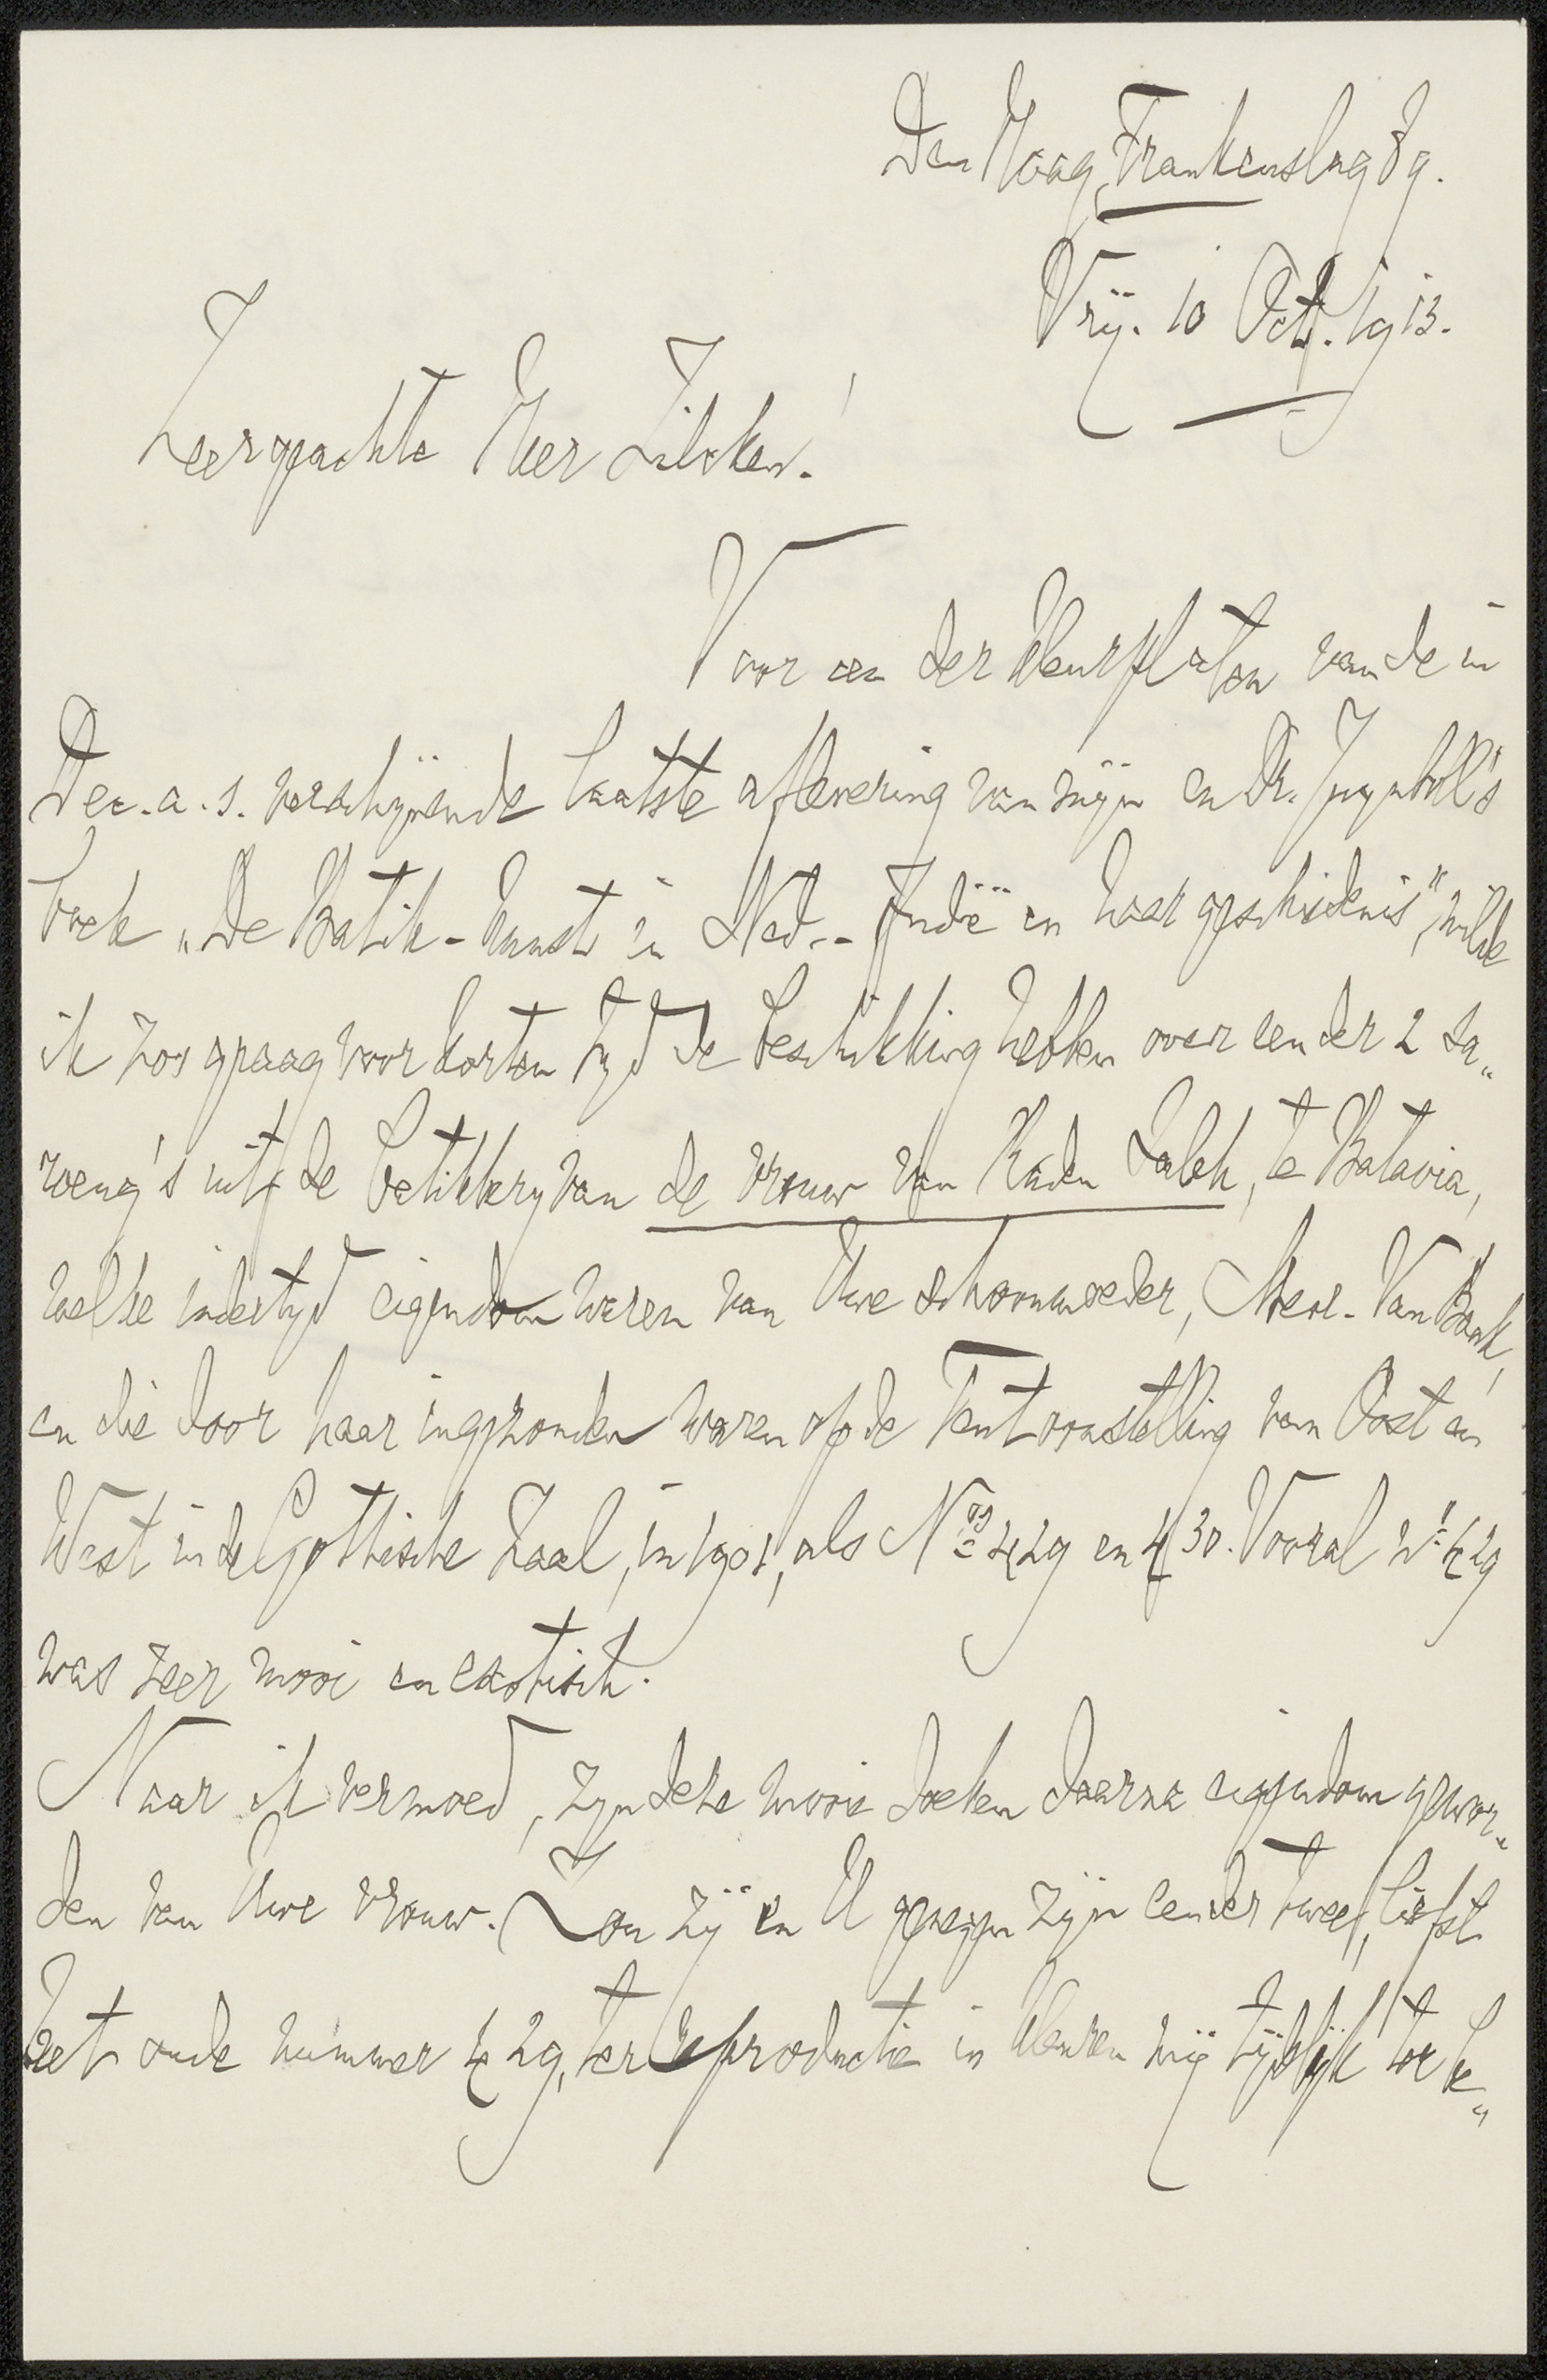 Den Haag, Frankenslag 89.
Vrij. 10 Oct. 1913.
Zeergeachte Heer Zilcken!
Voor een der kleurplaten van de in
Dec. a. s. verschijnende laatste aflevering van mijn en Dr. Juynboll's
boek „De Batik-kunst in Ned.-Indië en haar geschiedenis", wilde
ik zoo graag voor korten tijd de beschikking hebben over een der 2 sa„
roeng's uit de batikkerij van de vrouw van Raden Saleh, te Batavia,
welke indertijd eigendom waren van Uwe schoonmoeder, Mevr. Van
en die door haar ingezonden waren op de Tentoonstelling van Oost en
West in de Gothische Zaal, in 1901, als Nos 429 en 430. Vooral no 429
was zeer mooi en exotisch.
Naar ik vermoed, zijn deze mooie doeken daarna eigendom gewor„
den van Uwe vrouw. Zou zij en U genegen zijn een der twee, liefst
het oude nummer 429, ter reproductie in kleuren mij tijdelijk toe te„